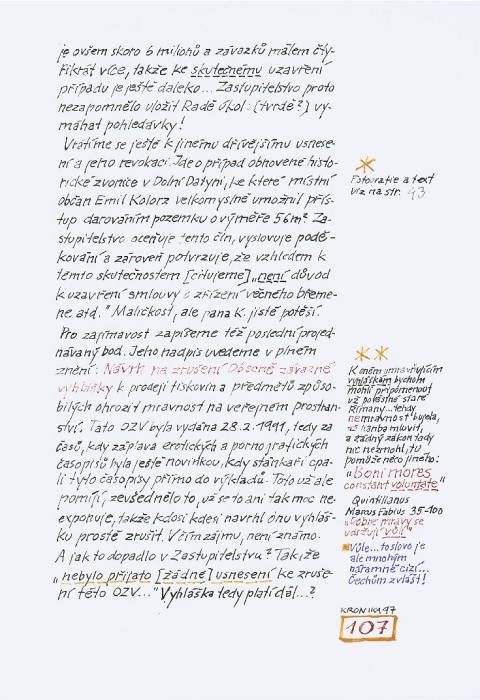 je ovšem skoro 6 milionů a závazků málem čty-
řikrát více, takže ke skutečnému uzavření
případu je ještě daleko... Zastupitelstvo proto
nezapomnělo uložit Radě úkol: (tvrdě?) vy-
máhat pohledávky!
Vrátíme se ještě k jinému dřívějšímu usnese-
ní a jeho revokaci. Jde o případ obnovené histo-
rické zvonice v Dolní Datyni, ke které místní
občan Emil Kolorz velkomyslně umožnil přís-
tup darováním pozemku o výměře 56m². Za-
stupitelstvo oceňuje tento čin, vyslovuje podě-
kování a zároveň potvrzuje, že vzhledem k
těmto skutečnostem [citujeme] „není důvod
k uzavření smlouvy o zřízení věcného břeme-
ne atd." Maličkost, ale pana K. jistě potěší.
Pro zajímavost zapíšeme též poslední projed-
návaný bod. Jeho nadpis uvedeme v plném
znění: Návrh na zrušení Obecně závazné
vyhlášky k prodeji tiskovin a předmětů způso-
bilých ohrozit mravnost na veřejném prostran-
ství. Tato OZV byla vydána 28.2.1991, tedy za
časů, kdy záplava erotických a pornografických
časopisů byla ještě novinkou, kdy stánkaři cpa-
li tyto časopisy přímo do výkladů. Toto už ale
pomíjí, zevšednělo to, už se to ani tak moc ne-
exponuje, takže kdosi kdesi navrhl onu vyhláš-
ku prostě zrušit. V čím zájmu, není známo.
A jak to dopadlo v Zastupitelstvu? Tak, že
„nebylo přijato [žádné] usnesení ke zruše-
ní této OZV..." Vyhláška tedy platí dál...?
*
Fotografie a text
viz na str. 93
**
K oněm
vyhláškám bychom
mohli připomenout
už pověstné staré
Římany...tehdy
nemravnost bujela,
až hanba mluvit,
a žádný zákon tady
nic nezmohl, tu
pomůže něco jiného:
"Boni mores
constant voluntate"
Quintilianus
Marcus Fabius 35-100
„Dobré mravy se
udržují vůlí"
Vůle...to slovo je
ale mnohým
náramně cizí...
Čechům zvlášť!
KRONIKA 97
107